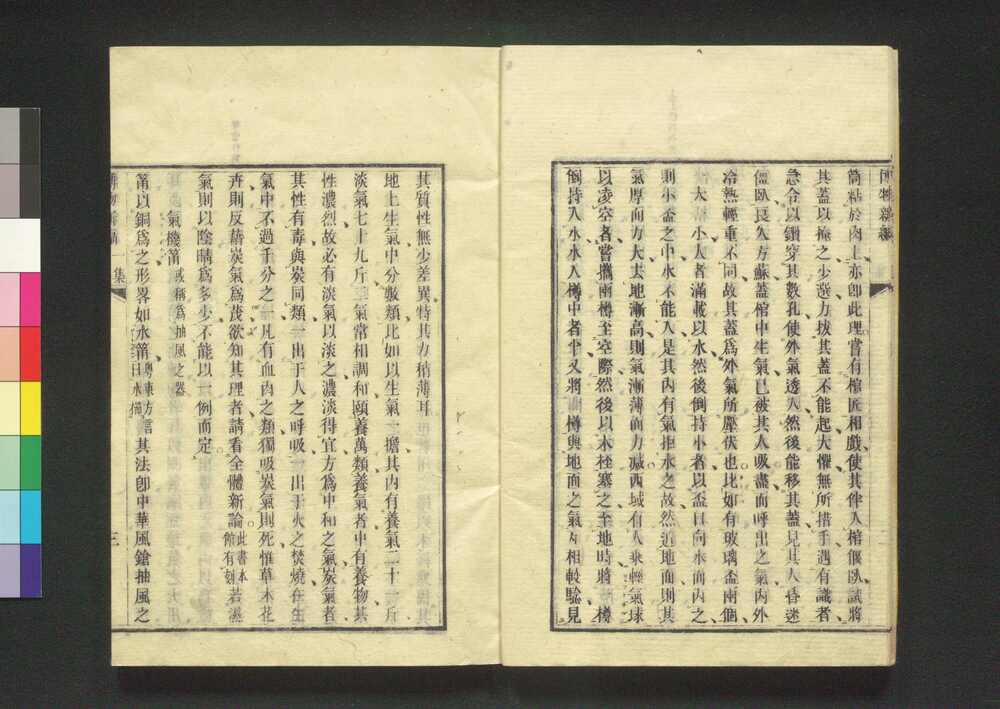 博物新編
筒粘於肉上亦卽此理嘗有棺匠相戲使其伴人棺偃臥試將
其蓋以掩之少選力拔其蓋不能起大懼無所措手遇有識者
急令以鑽穿其數孔使外氣透入然後能移其蓋見其人昏迷
僵臥良久方蘇蓋棺中生氣已被其人吸盡而呼出之氣內外
冷熱輕重不同故其蓋爲外氣所壓伏也比如有玻璃盃兩個
一大一小大者滿載以水然後倒持小者以盃口向水面內之
則小盃之中水不能入是其內有氣拒水之故然近地面則其
氣厚而力大去地漸高則氣漸薄而力減西域有人乘輕氣球
以凌空者嘗攜兩樽至空際然後以木栓塞之至地時將一樽
倒持入水水入樽中者半又將一樽與地面之氣相較驗見
其質性無少差異特其力稍薄耳
地上生氣中分數類比如以生氣一擔其內有養氣二十一斤
淡氣七十九斤二氣常相調和頤養萬類養氣者中有養物其
性濃烈故必有淡氣以淡之濃淡得宜方爲中和之氣炭氣者
其性有毒與炭同類一出于人之呼吸一出于火之焚燒在生
氣中不過千分之一凡有血肉之類獨吸炭氣則死惟草木花
卉則反藉炭氣爲茂欲知其理者請看全體新論此書本館有刻若濕
氣則以陰晴爲多少不能以一例而定
氣機筩或稱爲抽風之器
筩以銅爲之形畧如水筩粵東方言曰水Its法卽中華風鎗抽風之
一集
三